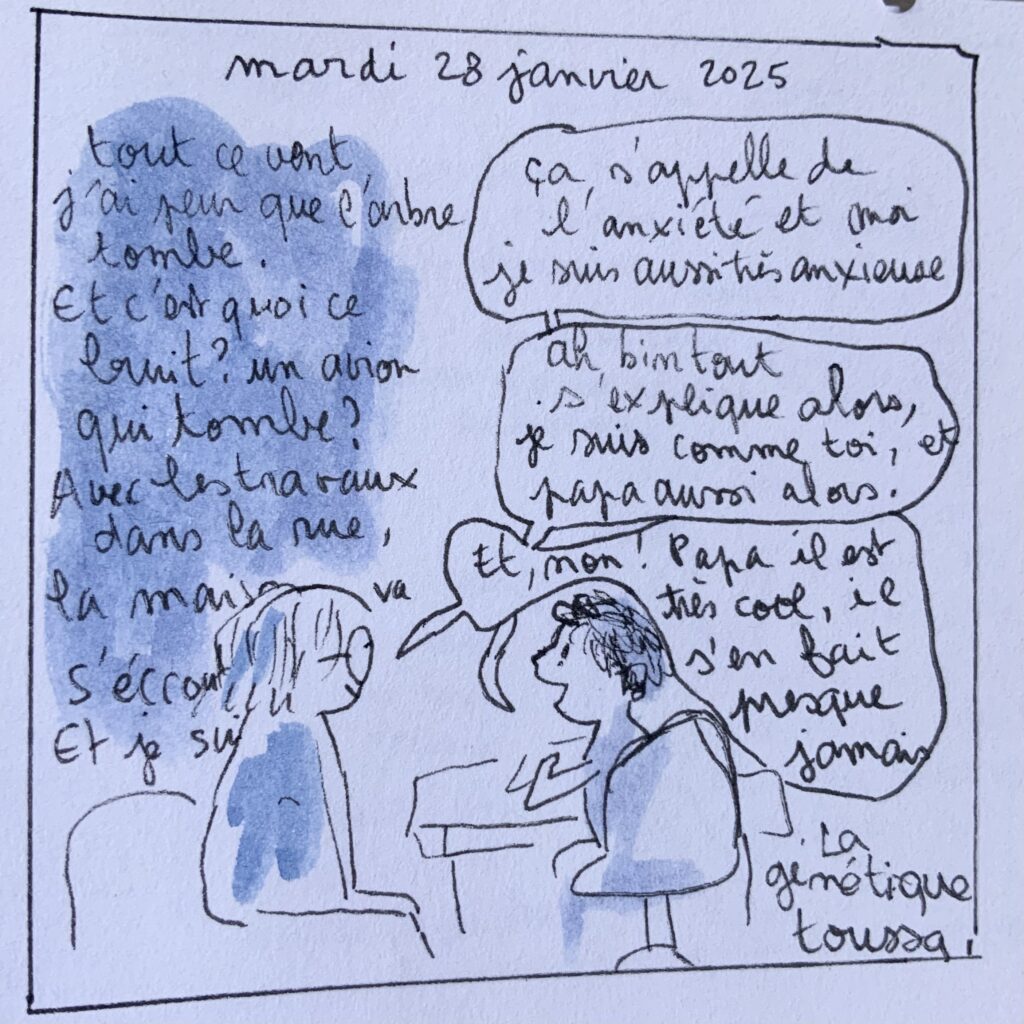 mardi 28 janvier 2025
tout ce vent,
j'ai peur que l'arbre
tombe.
Et c'est quoi ce
bruit? un avion
qui tombe?
Avec les travaux
dans la rue,
la maiso va
s'écrout
Et je sui
ça, s'appelle de
l'anxiété et moi
je suis aussi très anxieuse
ah, bim tout
s'explique alors,
je suis comme toi, et
papa aussi alors.
Et, non! Papa il est
très cool, il
s'en fait
presque
jamais
La
génétique
toussa.